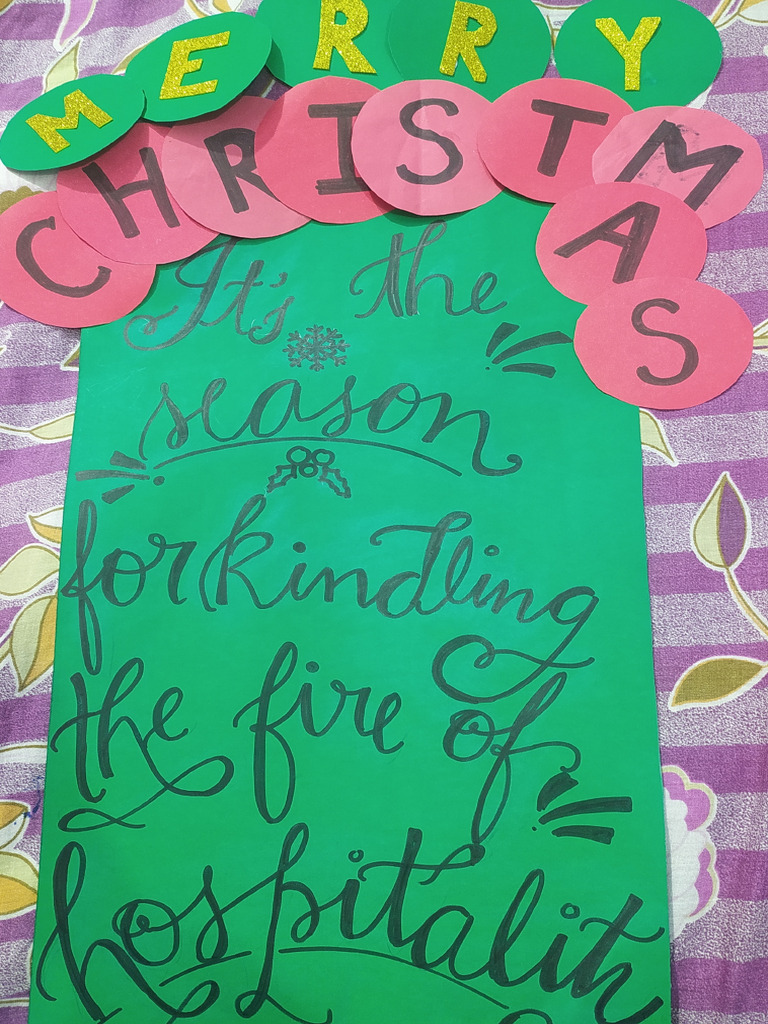 MERRY
CHRISTMAS
It's the
season
for kindling
the fire of
hospitality